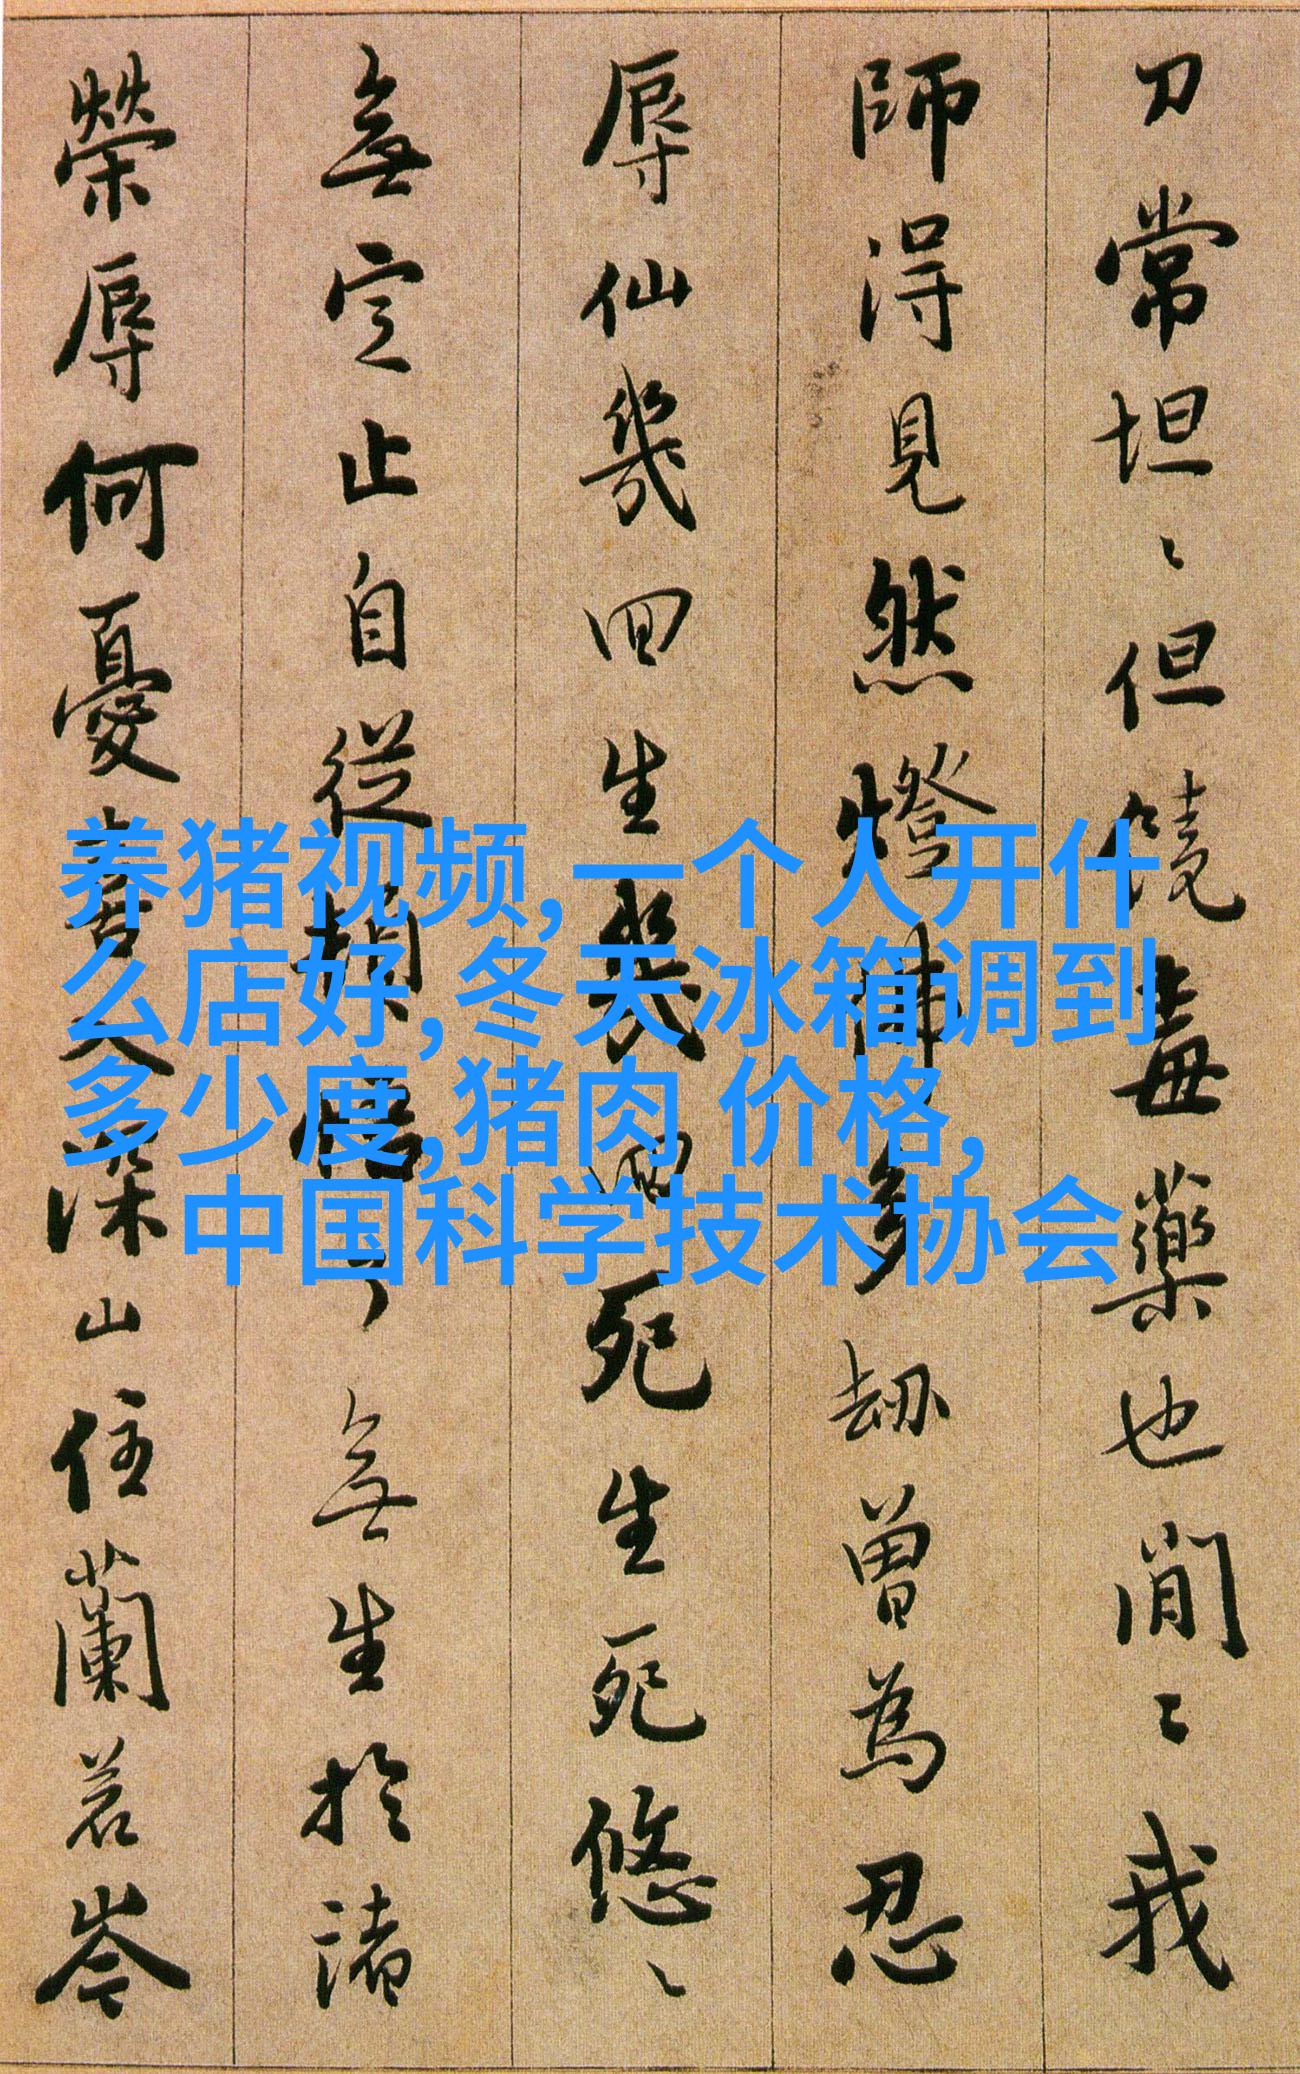 刀常坦〻但饒毒藥也閒〻我
師得見然燈佛多劫曾為忍
辱仙幾回生幾回死生死悠〻
無定止自從頓悟了無生於諸
榮辱何憂喜入深山住蘭若岑
养猪视频,一个人开什
么店好,冬天冰箱调到
多少度,猪肉 价格,
中国科学技术协会